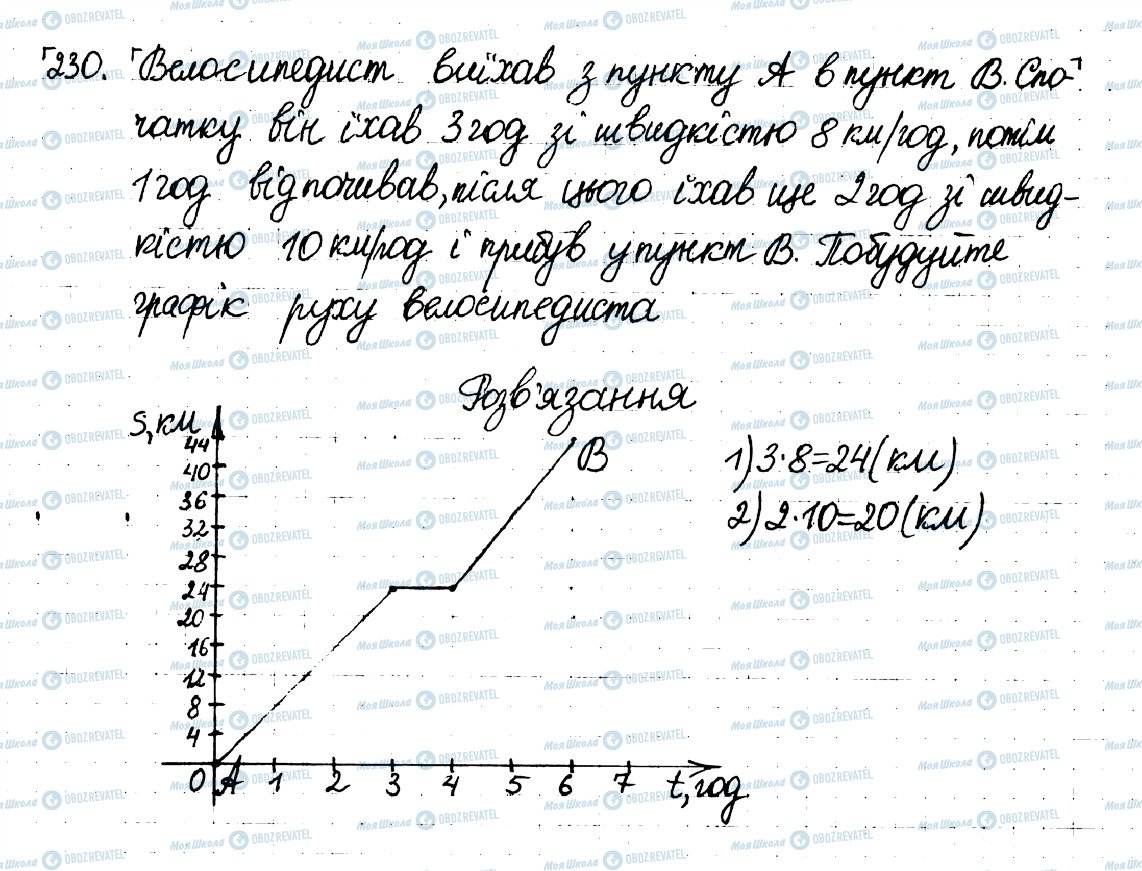 230. Велосипедист виїхав з пункту А в пункт В. Спо-
чатку він їхав 3 год зі швидкістю 8 км/год, потім
1 год відпочивав, після цього їхав ще 2 год зі швид-
кістю 10 км/год і прибув у пункт В. Побудуйте
графік руху велосипедиста
Розв'язання
S, км
44
40
36
32
28
24
20
16
12
8
4
B
1) 3·8=24(км)
2) 2·10=20(км)
0 A 1 2 3 4 5 6 7 t, год
Моя Школа OBOZREVATEL